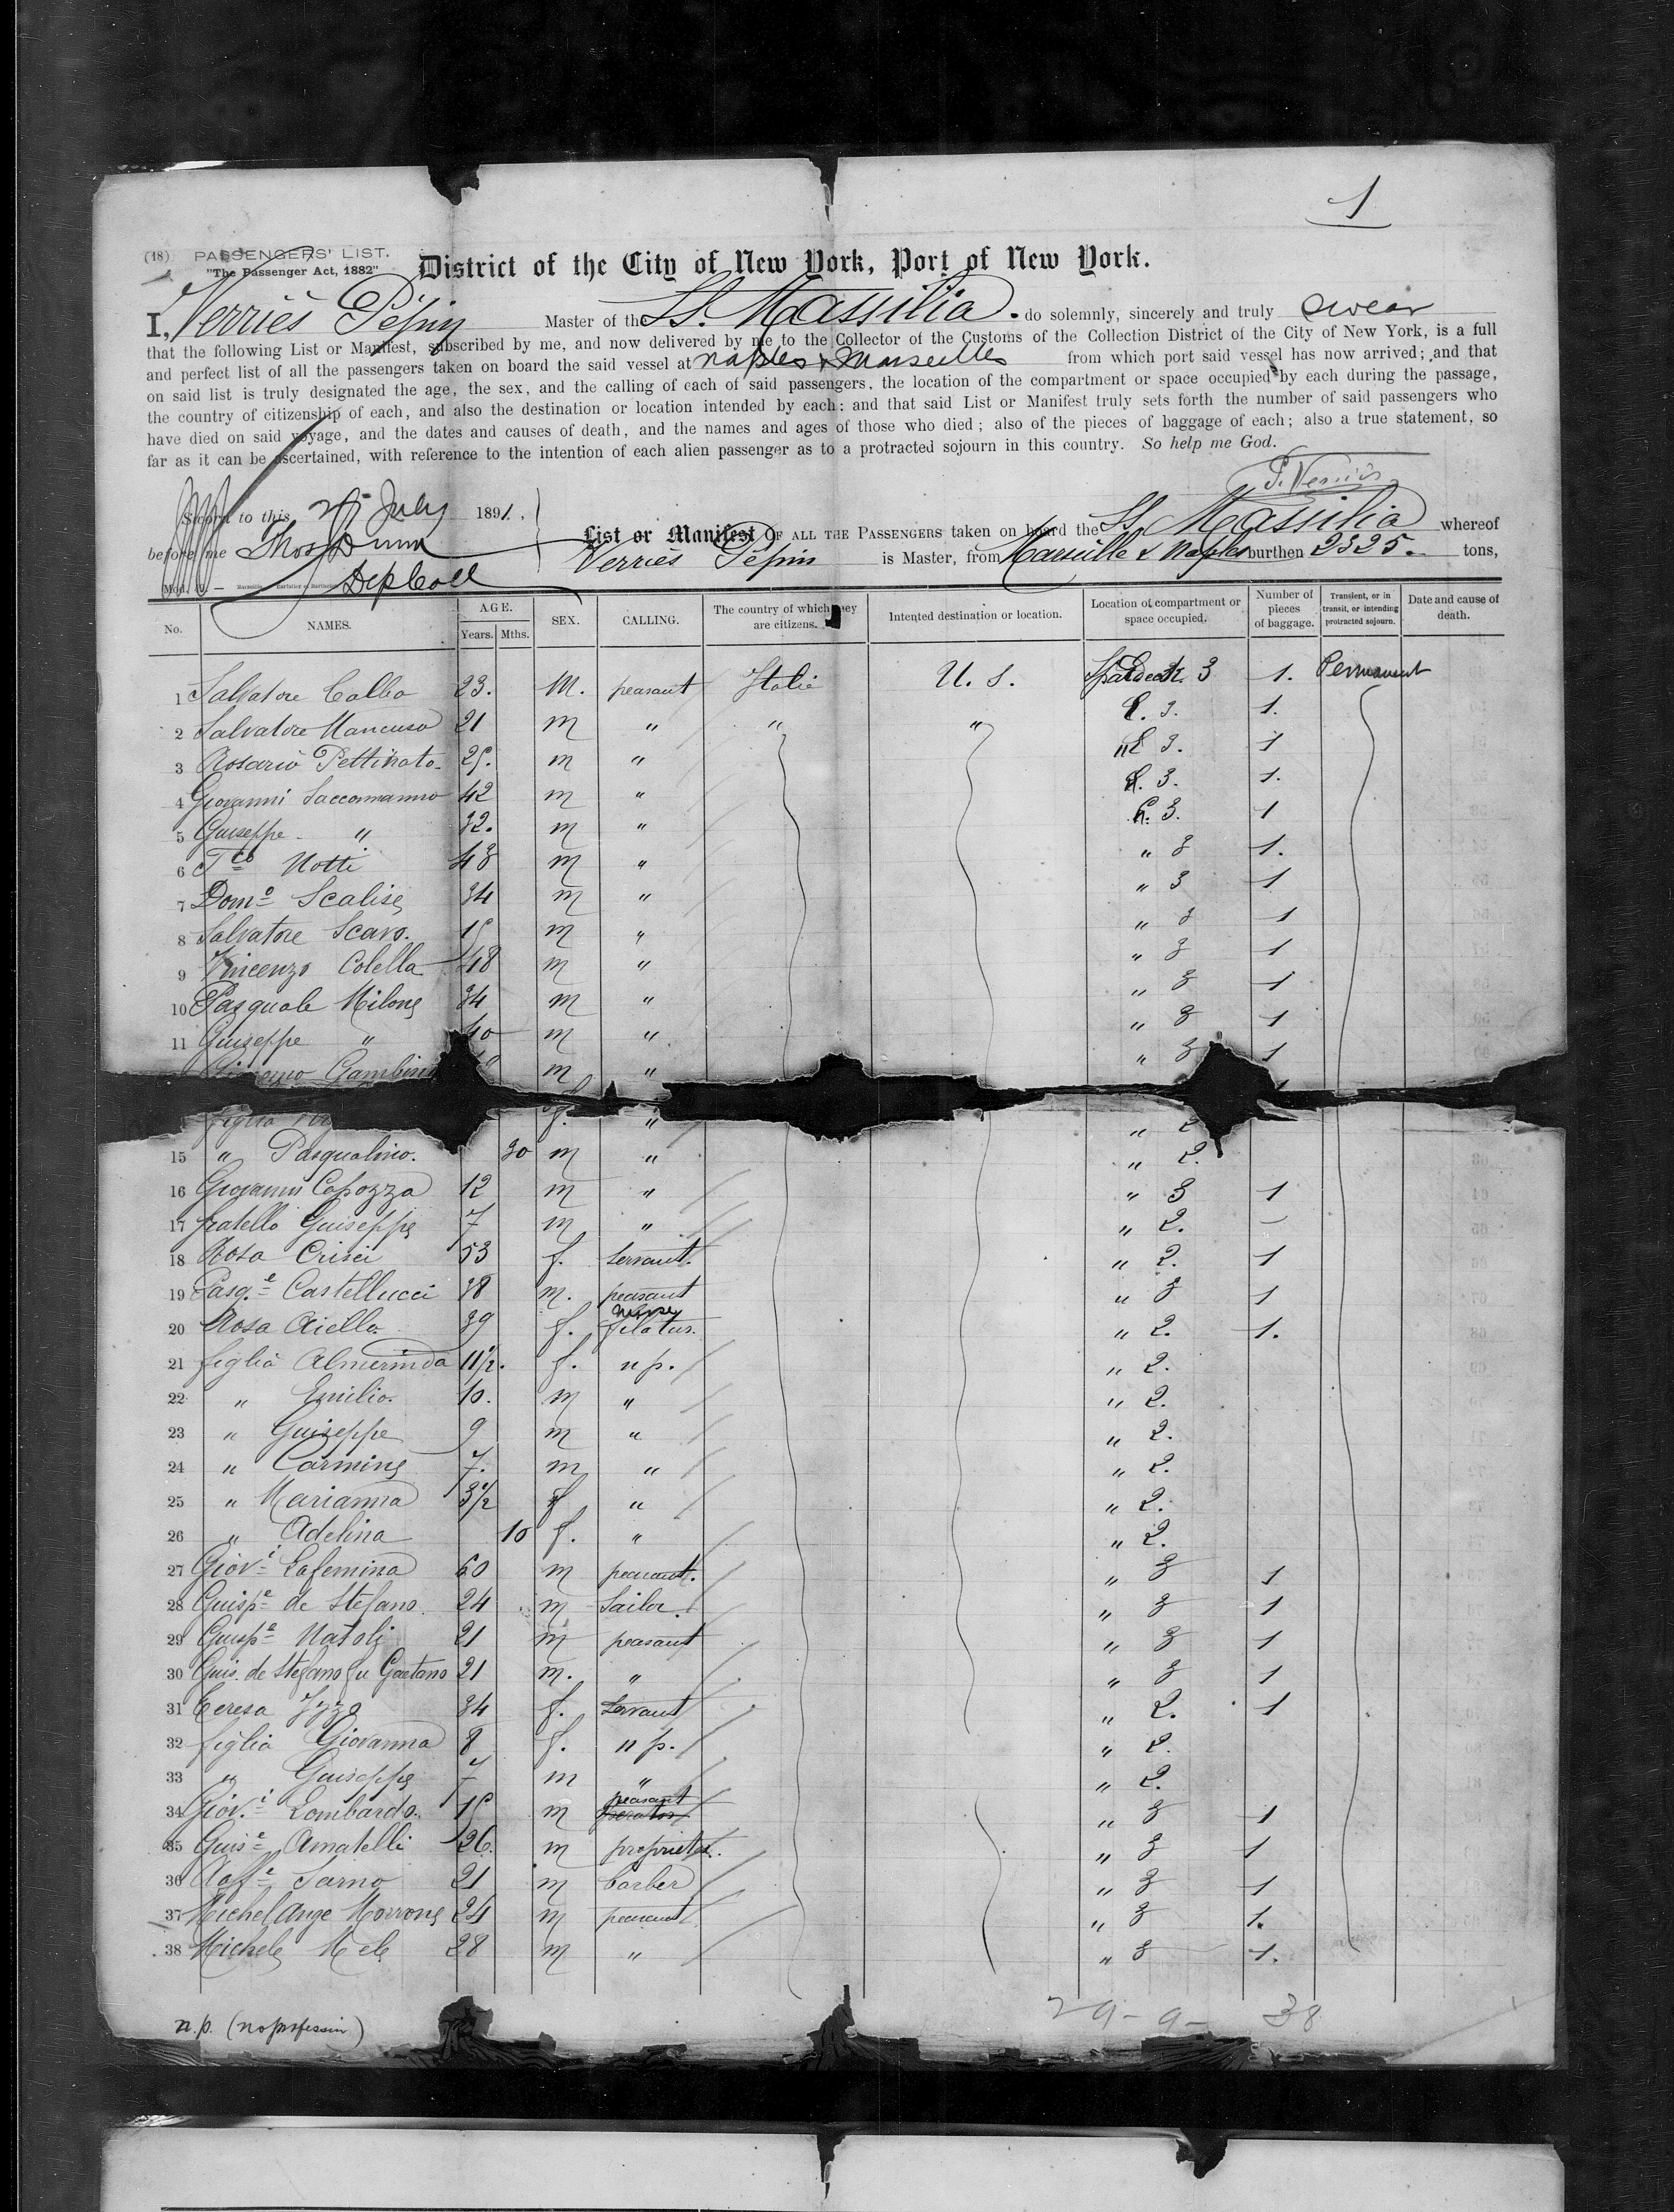 1
(18) PASSENGERS' LIST.
"The Passenger Act, 1882"
District of the City of New York, Port of New York.
I, Verriés Pépin Master of the SS. Massilia. do solemnly, sincerely and truly swear
that the following List or Manifest, subscribed by me, and now delivered by me to the Collector of the Customs of the Collection District of the City of New York, is a full
and perfect list of all the passengers taken on board the said vessel at Naples & Marseilles from which port said vessel has now arrived; and that
on said list is truly designated the age, the sex, and the calling of each of said passengers, the location of the compartment or space occupied by each during the passage,
the country of citizenship of each, and also the destination or location intended by each: and that said List or Manifest truly sets forth the number of said passengers who
have died on said voyage, and the dates and causes of death, and the names and ages of those who died; also of the pieces of baggage of each; also a true statement, so
far as it can be ascertained, with reference to the intention of each alien passenger as to a protracted sojourn in this country. So help me God.
Sworn to this July 1891.
before me Thos Dunn
Dep Coll
List or Manifest OF ALL THE PASSENGERS taken on board the SS. Massilia whereof
Verriés Pépin is Master, from Marseille & Naples burthen 2325. tons,
No. NAMES. AGE. Years. Mths. SEX. CALLING. The country of which they are citizens. Intented destination or location. Location of compartment or space occupied. Number of pieces of baggage. Transient, or in transit, or intending protracted sojourn. Date and cause of death.
1 Salvatore Calba 23. M. peasant Italie U. S. 3 1. Permanent
2 Salvatore Mancuso 21 m " " " 3. 1.
3 Rosario Pettinato 25. m " " 3. 1
4 Giovanni Saccomanno 42 m " 3. 1.
5 Guiseppe " 32. m " 3. 1
6 Notti 43 m " " 3 1.
7 Domo Scalise 34 m " " 3 1
8 Salvatore Scavo. 15 m " " 3 1
9 Vincenzo Colella 48 m " " 3 1
10 Pasquale Milone 34 m " " 3 1
11 Guiseppe " 40 m " " 3 1
Gambin m " " 3 1
figlia f. " " 2
15 " Pasqualino. 30 m " " 2.
16 Giovanni Capozza 12 m " " 3 1
17 fratello Guiseppe 7 m " " 2. –
18 Rosa Crisci 53 f. Servant. " 2. 1
19 Pasq.e Castellucci 38 m. peasant " 3 1
20 Rosa Aiella 39 f. " 2. 1.
21 figlia Almerinda 11 1/2. f. n p. " 2.
22 " Emilio. 10. m " " 2.
23 " Guiseppe 9 m " " 2.
24 " Carmine 7. m " " 2.
25 " Marianna 3 1/2 f " " 2.
26 " Adelina 10 f. " " 2.
27 Giov.i Lafemina 60 m peasant. " 3 1
28 Guisp.e de Stefano 24 m Sailor. " 3 1
29 Guisp.e Natoli 21 m peasant " 3 1
30 Guis. de Stefano fu Gaetano 21 m. " " 3 1
31 Teresa Izzo 34 f. Servant " 2. 1
32 figlia Giovanna 8 f. n p. " 2.
33 " Guiseppe 7 m " " 2.
34 Giov.i Lombardo. 15 m peasant " 3 1
35 Guis.e Amatelli 26. m " 3 1
36 Raff.e Sarno 21 m barber " 3 1
37 Michel Ange Morrone 24 m peasant " 3 1.
38 Michele Mele 28 m " " 3 1.
n.p. (no profession)
29 - 9 - 38